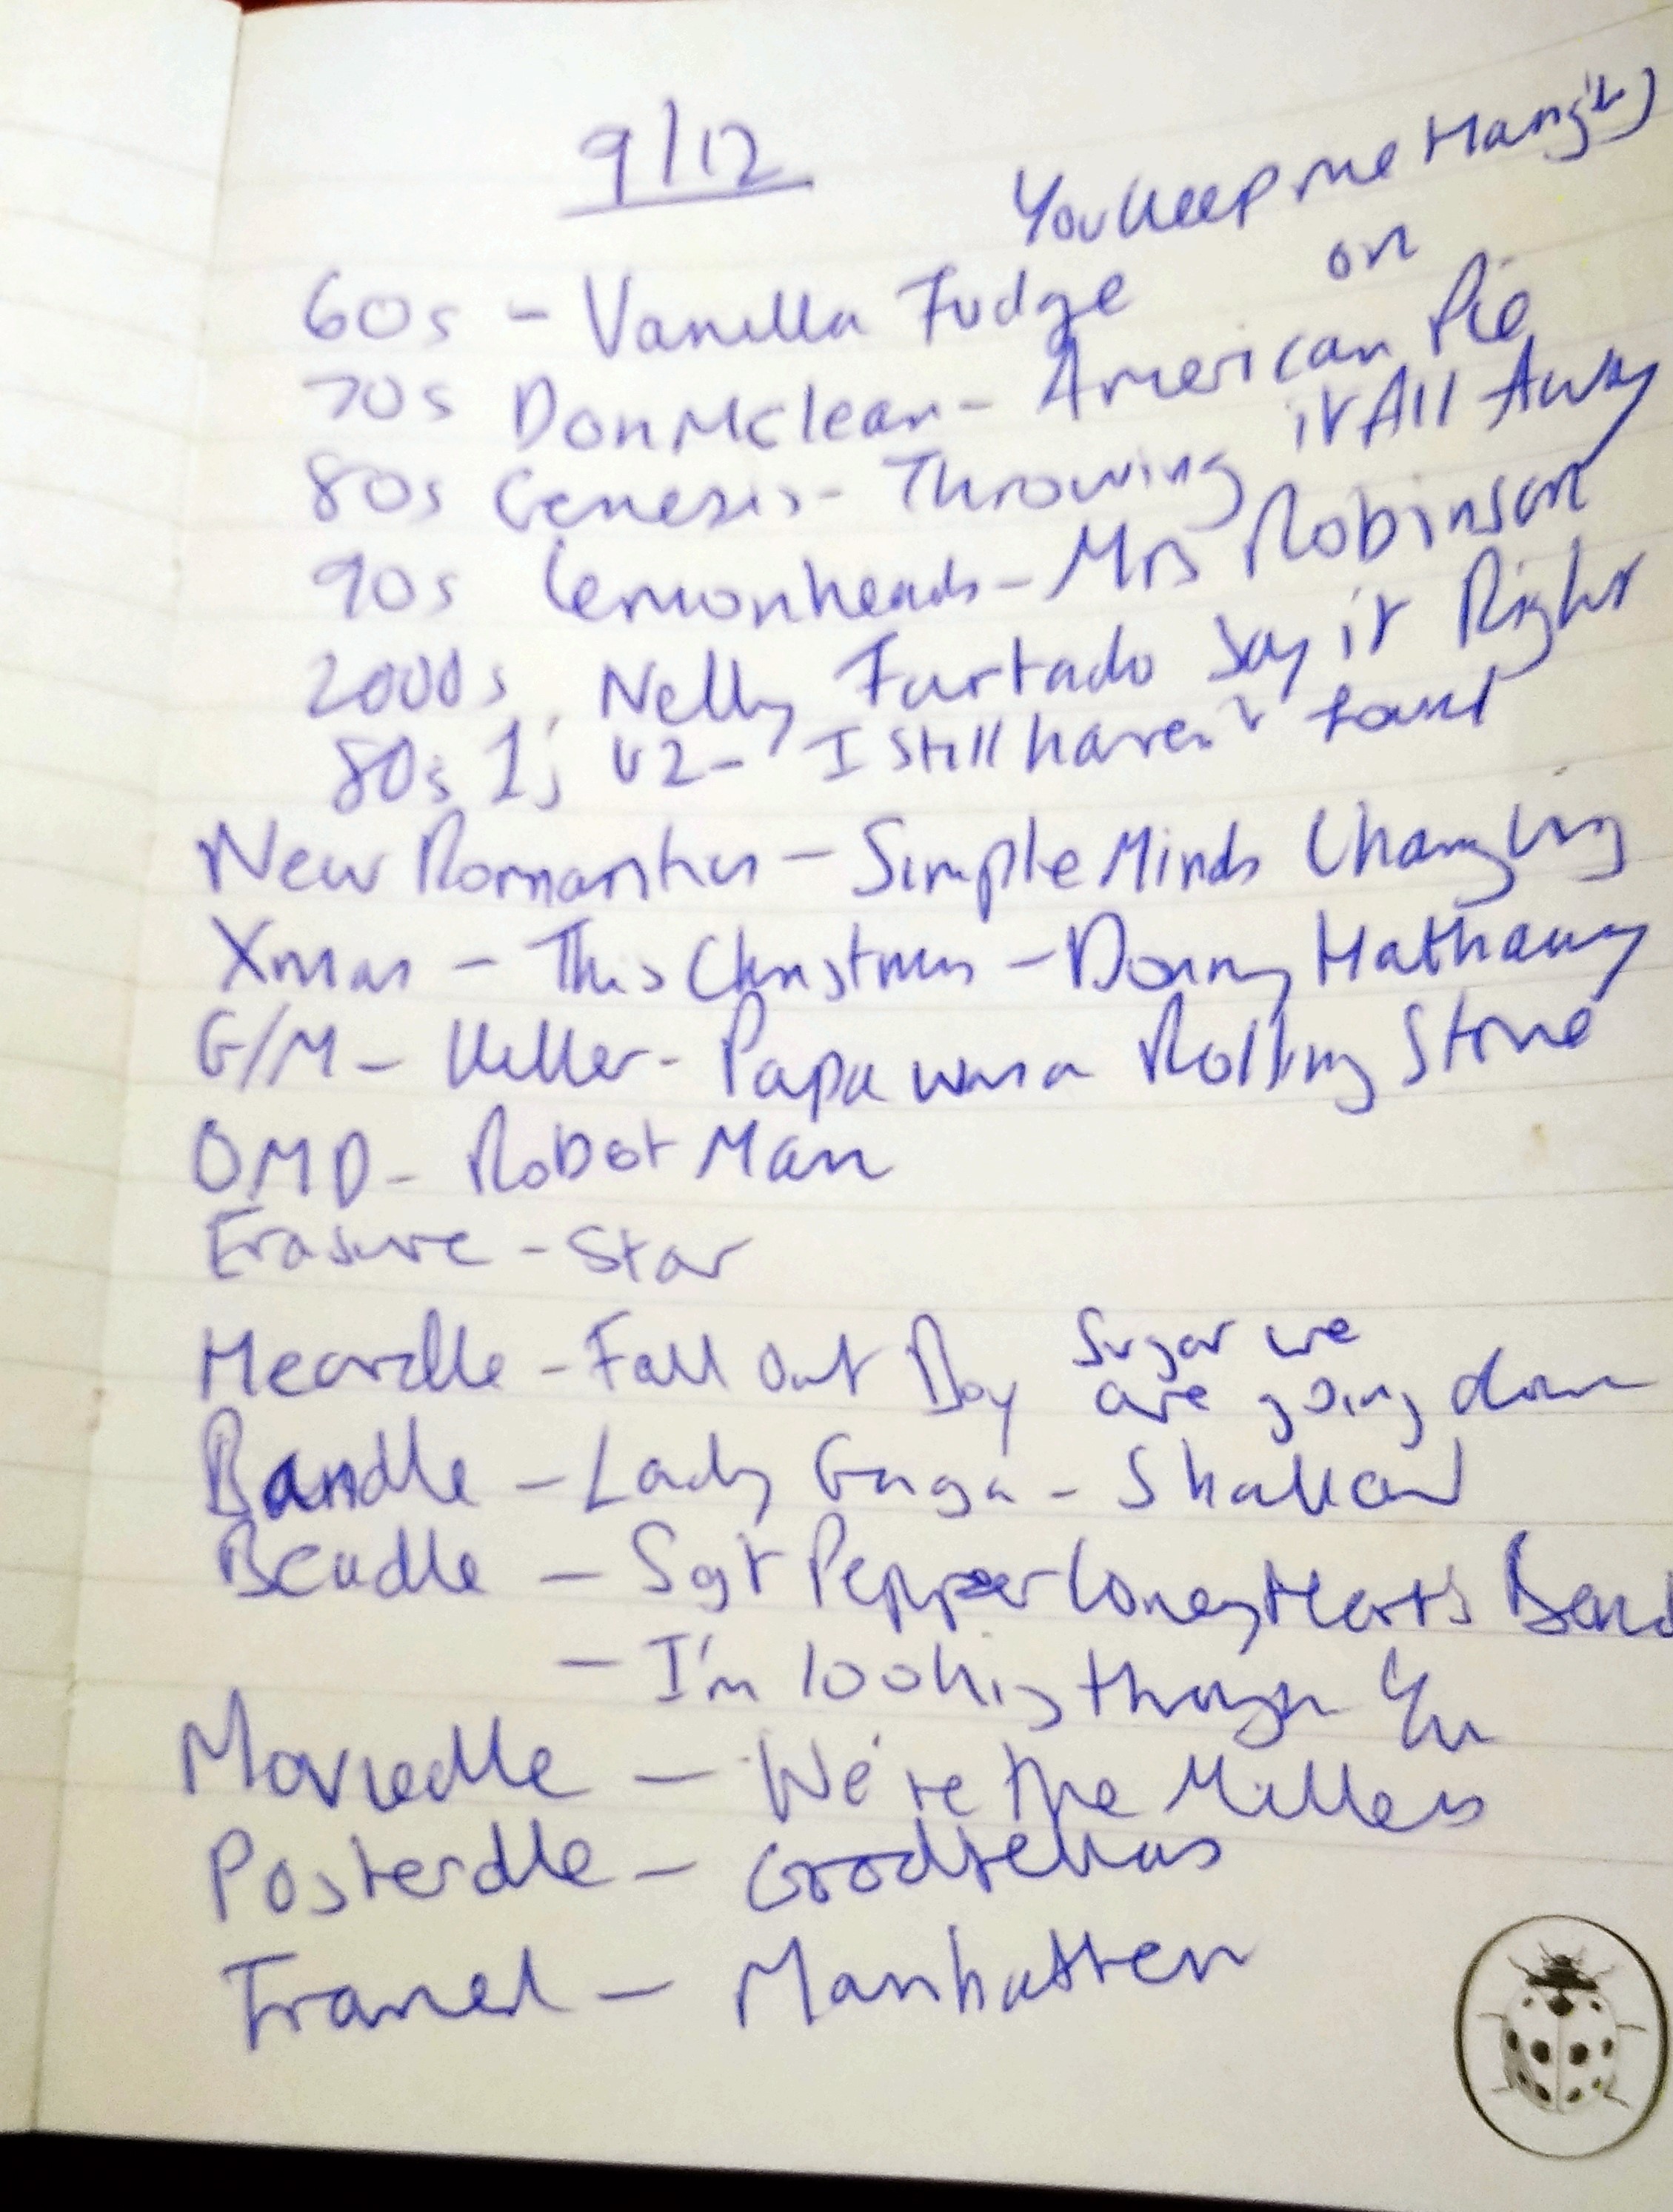 9/12
You keep me Hanging
on
60s - Vanilla Fudge
70s Don Mclean - American Pie
80s Genesis - Throwing it All Away
90s Lemonheads - Mrs Robinson
2000s Nelly Furtado Say it Right
80s 1; U2 - I still haven't found
New Romantics - Simple Minds Changling
Xmas - This Christmas - Donny Hathaway
G/M - Killer - Papa was a Rolling Stone
OMD - Robot Man
Erasure - Star
Heardle - Fall Out Boy Sugar we
are going down
Bandle - Lady Gaga - Shallow
Beadle - Sgt Pepper Loney Hearts Band
- I'm looking through You
Moviedle - We're the Millers
Posterdle - Goodfellas
Framed - Manhatten